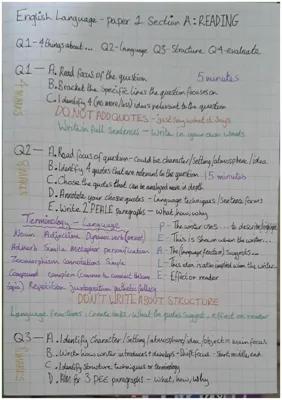 English Language - paper 1 Section A: READING
Q1 - 4 things about... Q2 - Language Q3 - Structure Q4 - evaluate
Q1 - A. Read focus of the question 5 minutes
B. Bracket the specific lines the question focuses on
C. Identify 4 (no more/less) ideas relevant to the question
4 MARKS
DO NOT ADD QUOTES - just say what it says
Write in full sentences - Write in your own words
Q2 - A. Read focus of question - could be character/setting/atmosphere/idea
B. Identify 4 quotes that are relevant to the question 15 minutes
C. Choose the quotes that can be analysed more in depth
D. Annotate your chosen quotes - language techniques/sentence forms
E. Write 2 PEALE paragraphs - what, how, why
8 MARKS
Terminology - Language
P - The writer uses... to describe/
Noun Adjective Dynamic verb
E - This is shown when the writer...
Adverb Simile Metaphor personification
A - The (language feature) suggests...
Zoomorphism connotations Simple
L - This idea is when the writer...
Compound complex
E - Effect on reader
Repetition juxtaposition pathetic fallacy
DON'T WRITE ABOUT STRUCTURE
Language functions: Create tasks, What the quotes suggest, effect on reader
Q3 - A. Identify Character/setting/atmosphere/idea/object in main focus
B. Work how writer introduces + develops - Shift focus - Start, middle, end
C. Identify structure techniques or terminology
D. Aim for 3 PEE paragraphs - what, how, why
8 MARKS